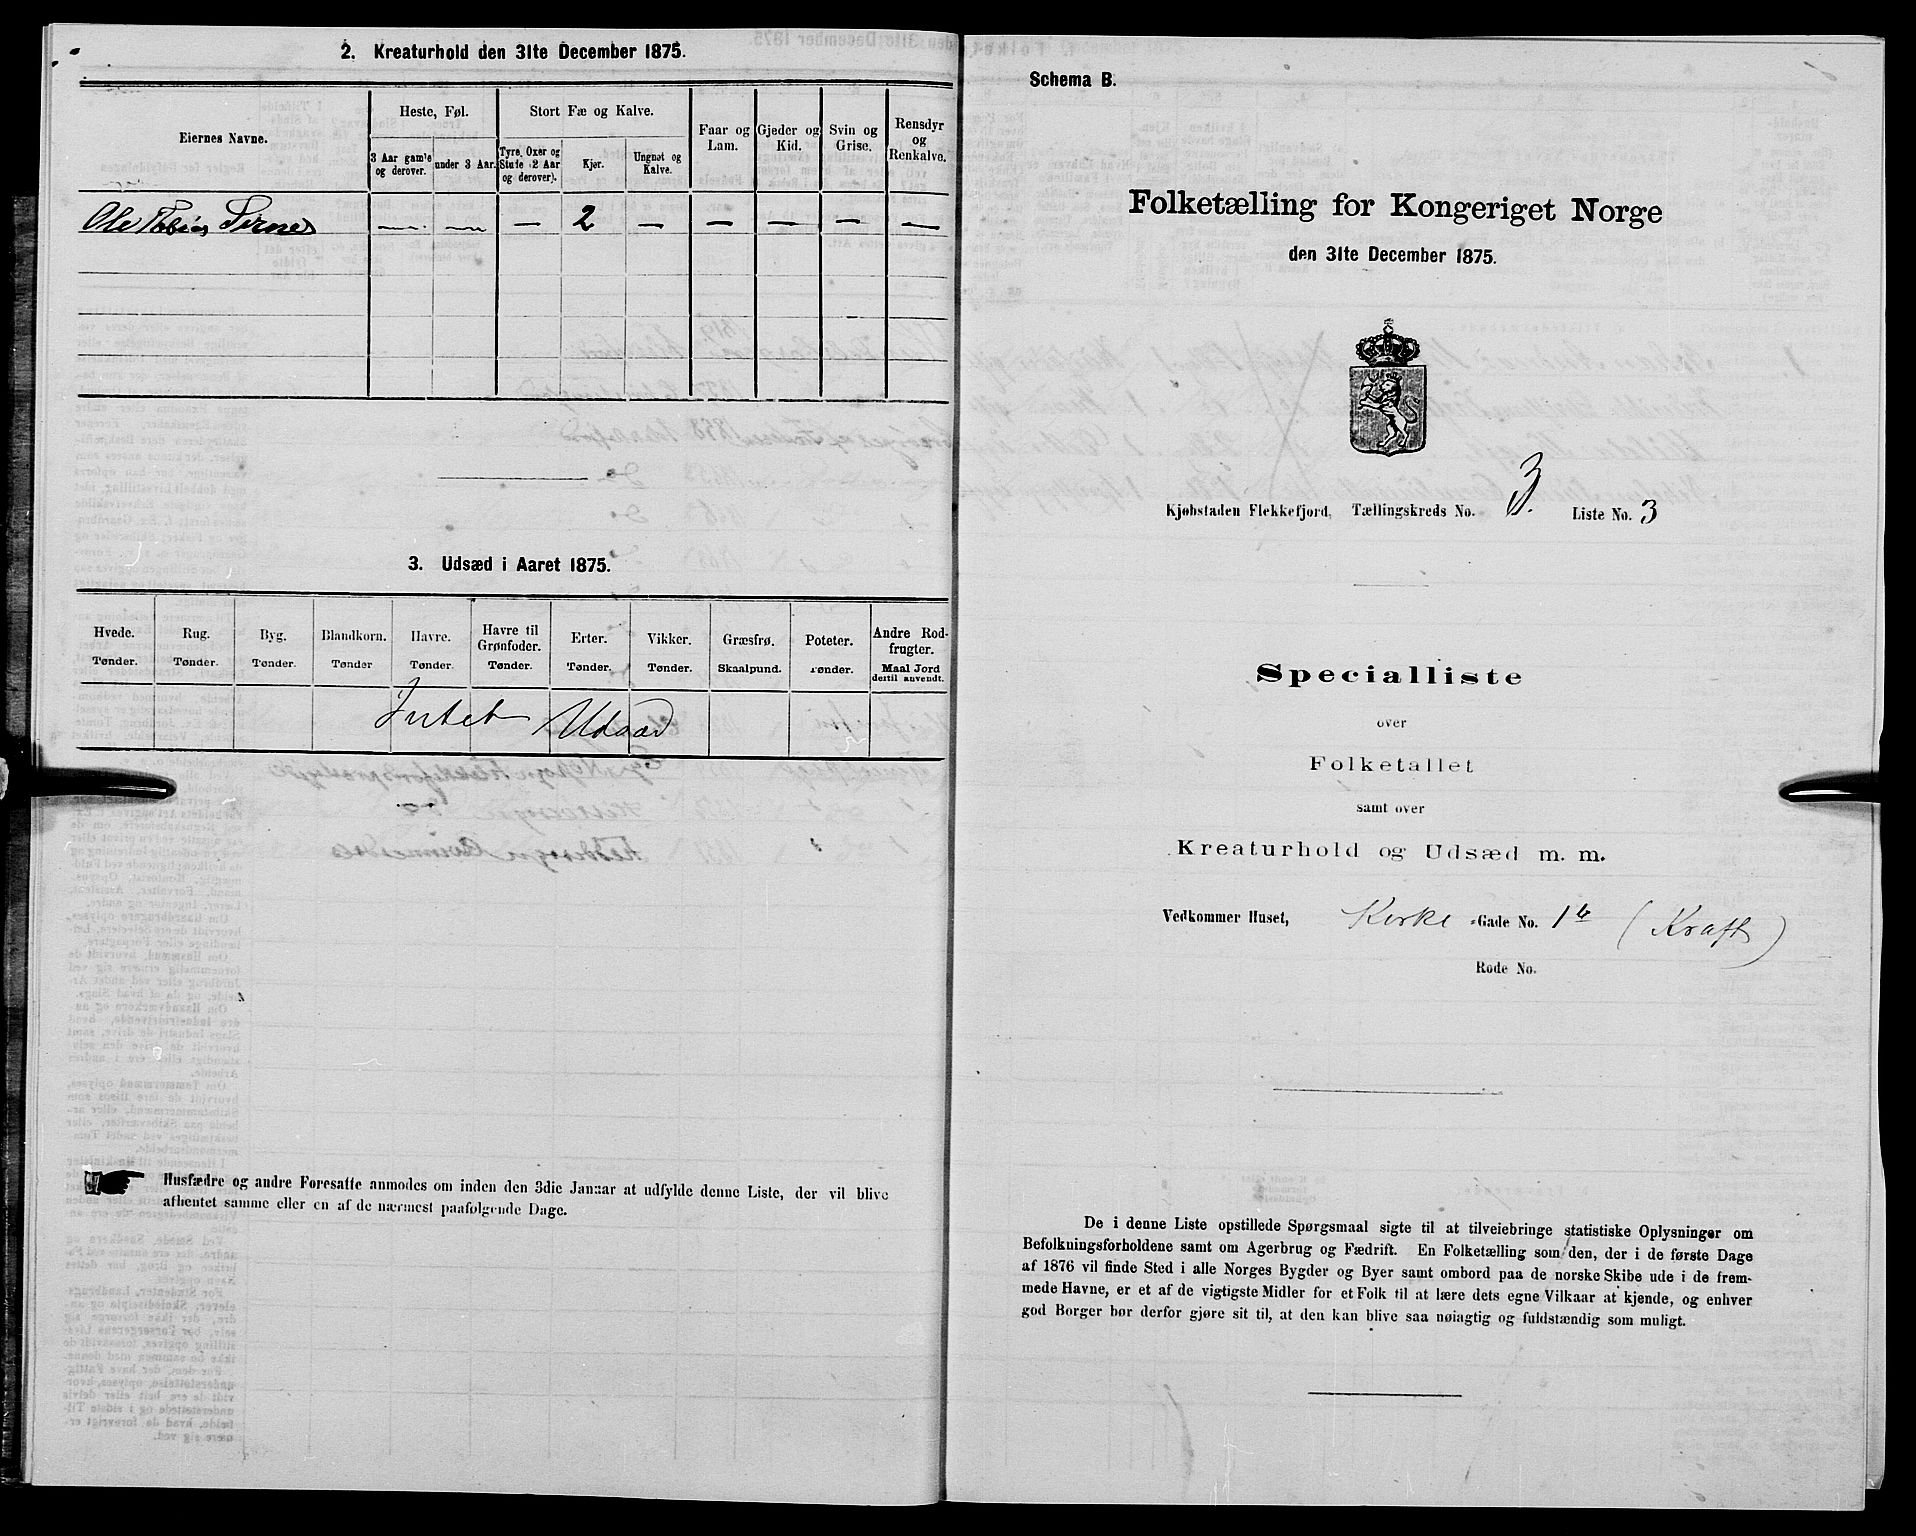 2. Kreaturhold den 31te December 1875.
Eiernes Navne.
Heste, Føl.
Stort Fæ og Kalve.
Faar og Lam.
Gjeder og Kid.
Svin og Grise.
Rensdyr og Renkalve.
3 Aar gam'le og derover.
under 3 Aar.
Tyre, Oxer og Stude (2 Aar og derover).
Kjør.
Ungnøt og Kalve.
Ole Tobias — — — 2 — — — — —
3. Udsæd i Aaret 1875.
Hvede. Rug. Byg. Blandkorn. Havre. Havre til Grønfoder. Erter. Vikker. Græsfrø. Poteter. Andre Rodfrugter.
Tønder. Tønder. Tønder. Tønder Tønder. Tønder. Tønder. Tønder. Skaalpund. Tønder. Maal Jord dertil anvendt.
Intet Udsæd
Husfædre og andre Foresatte anmodes om inden den 3die Januar at udfylde denne Liste, der vil blive
afhentet samme eller en af de nærmest paafølgende Dage.
Schema B.
Folketælling for Kongeriget Norge
den 31te December 1875.
Kjøbstaden Flekkefjord, Tællingskreds No. 3. Liste No. 3
Specialliste
over
Folketallet
samt over
Kreaturhold og Udsæd m. m.
Vedkommer Huset, Kirke -Gade No. 1b (Kraft)
Rode No.
De i denne Liste opstillede Spørgsmaal sigte til at tilveiebringe statistiske Oplysninger om
Befolkningsforholdene samt om Agerbrug og Fædrift. En Folketælling som den, der i de første Dage
af 1876 vil finde Sted i alle Norges Bygder og Byer samt ombord paa de norske Skibe ude i de frem-
mede Havne, er et af de vigtigste Midler for et Folk til at lære dets egne Vilkaar at kjende, og enhver
god Borger bør derfor gjøre sit til, at den kan blive saa nøiagtig og fuldstændig som muligt.